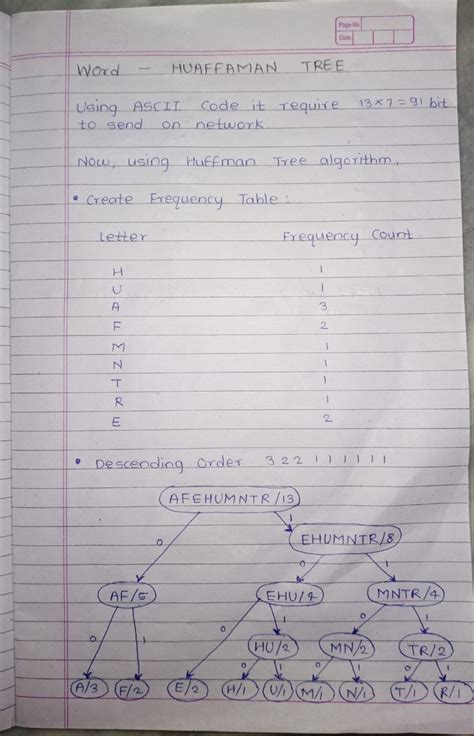 Page No.
Date
Word - HUAFFAMAN TREE
Using ASCII Code it require 13x7=91 bit
to send on network
Now, using Huffman Tree algorithm,
• Create Frequency Table :
Letter Frequency Count
H 1
U 1
A 3
F 2
M 1
N 1
T 1
R 1
E 2
• Descending Order 3 2 2 1 1 1 1 1 1
AFEHUMNTR/13
0 1
EHUMNTR/8
0 1
AF/5 EHU/4 MNTR/4
0 1 0 1 0 1
HU/2 MN/2 TR/2
0 1 0 1 0 1
A/3 F/2 E/2 H/1 U/1 M/1 N/1 T/1 R/1